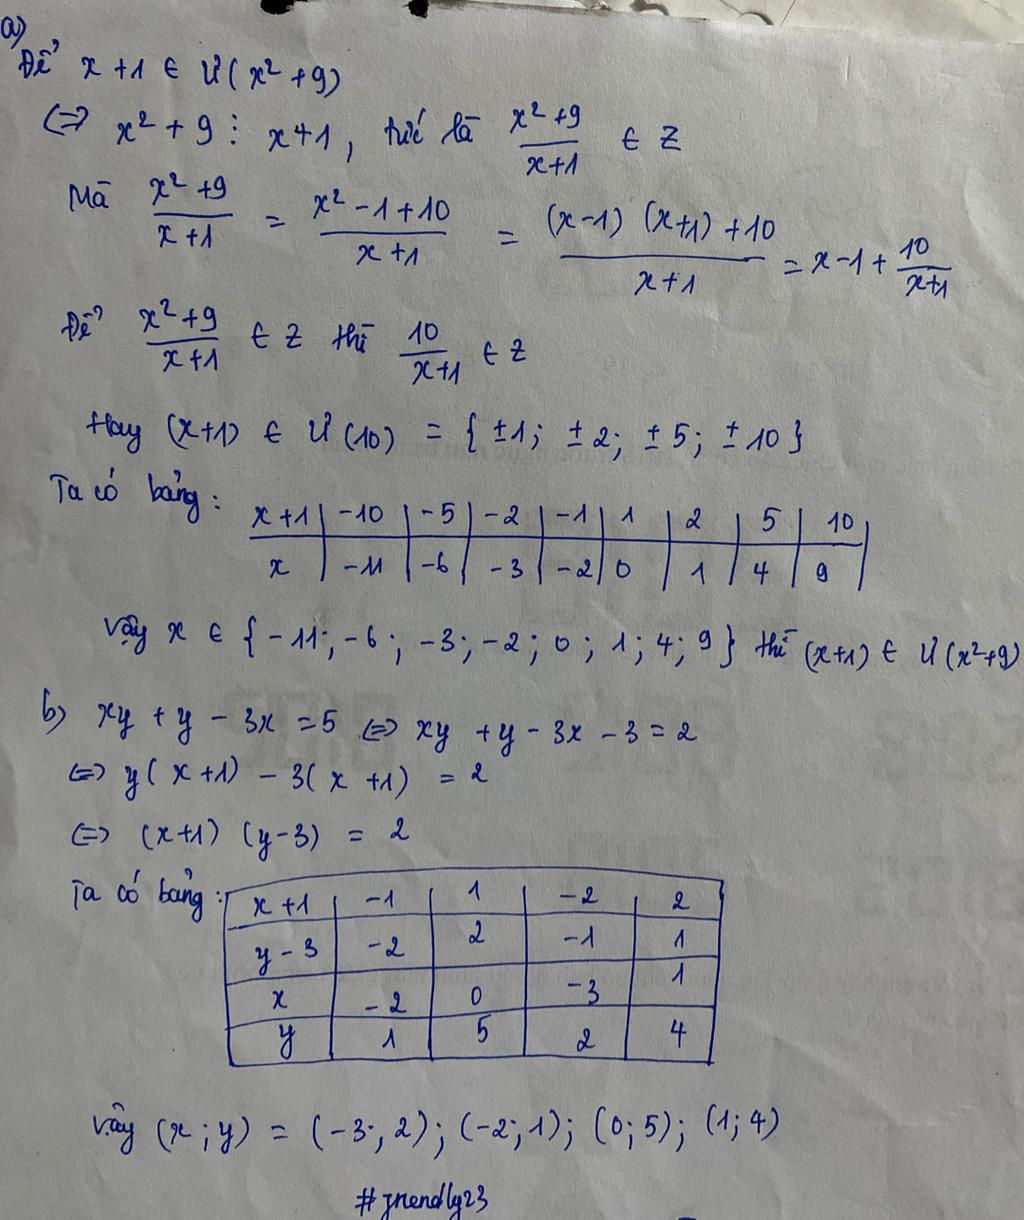 a)
Để x + 1 ∈ Ư( x² + 9)
⇔ x² + 9 ⋮ x + 1, tức là (x² + 9)/(x + 1) ∈ Z
Mà (x² + 9)/(x + 1) = (x² - 1 + 10)/(x + 1) = ((x - 1) (x + 1) + 10)/(x + 1) = x - 1 + 10/(x + 1)
Để (x² + 9)/(x + 1) ∈ Z thì 10/(x + 1) ∈ Z
Hay (x+1) ∈ Ư (10) = { ±1; ±2; ±5; ±10 }
Ta có bảng:
x + 1 | -10 | -5 | -2 | -1 | 1 | 2 | 5 | 10
x | -11 | -6 | -3 | -2 | 0 | 1 | 4 | 9
Vậy x ∈ { -11; -6; -3; -2; 0; 1; 4; 9 } thì (x+1) ∈ Ư (x²+9)
b) xy + y - 3x = 5 ⇔ xy + y - 3x - 3 = 2
⇔ y( x + 1) - 3( x + 1) = 2
⇔ (x+1) (y-3) = 2
Ta có bảng:
x + 1 | -1 | 1 | -2 | 2
y - 3 | -2 | 2 | -1 | 1
x | -2 | 0 | -3 | 1
y | 1 | 5 | 2 | 4
Vậy (x; y) = (-3; 2); (-2; 1); (0; 5); (1; 4)